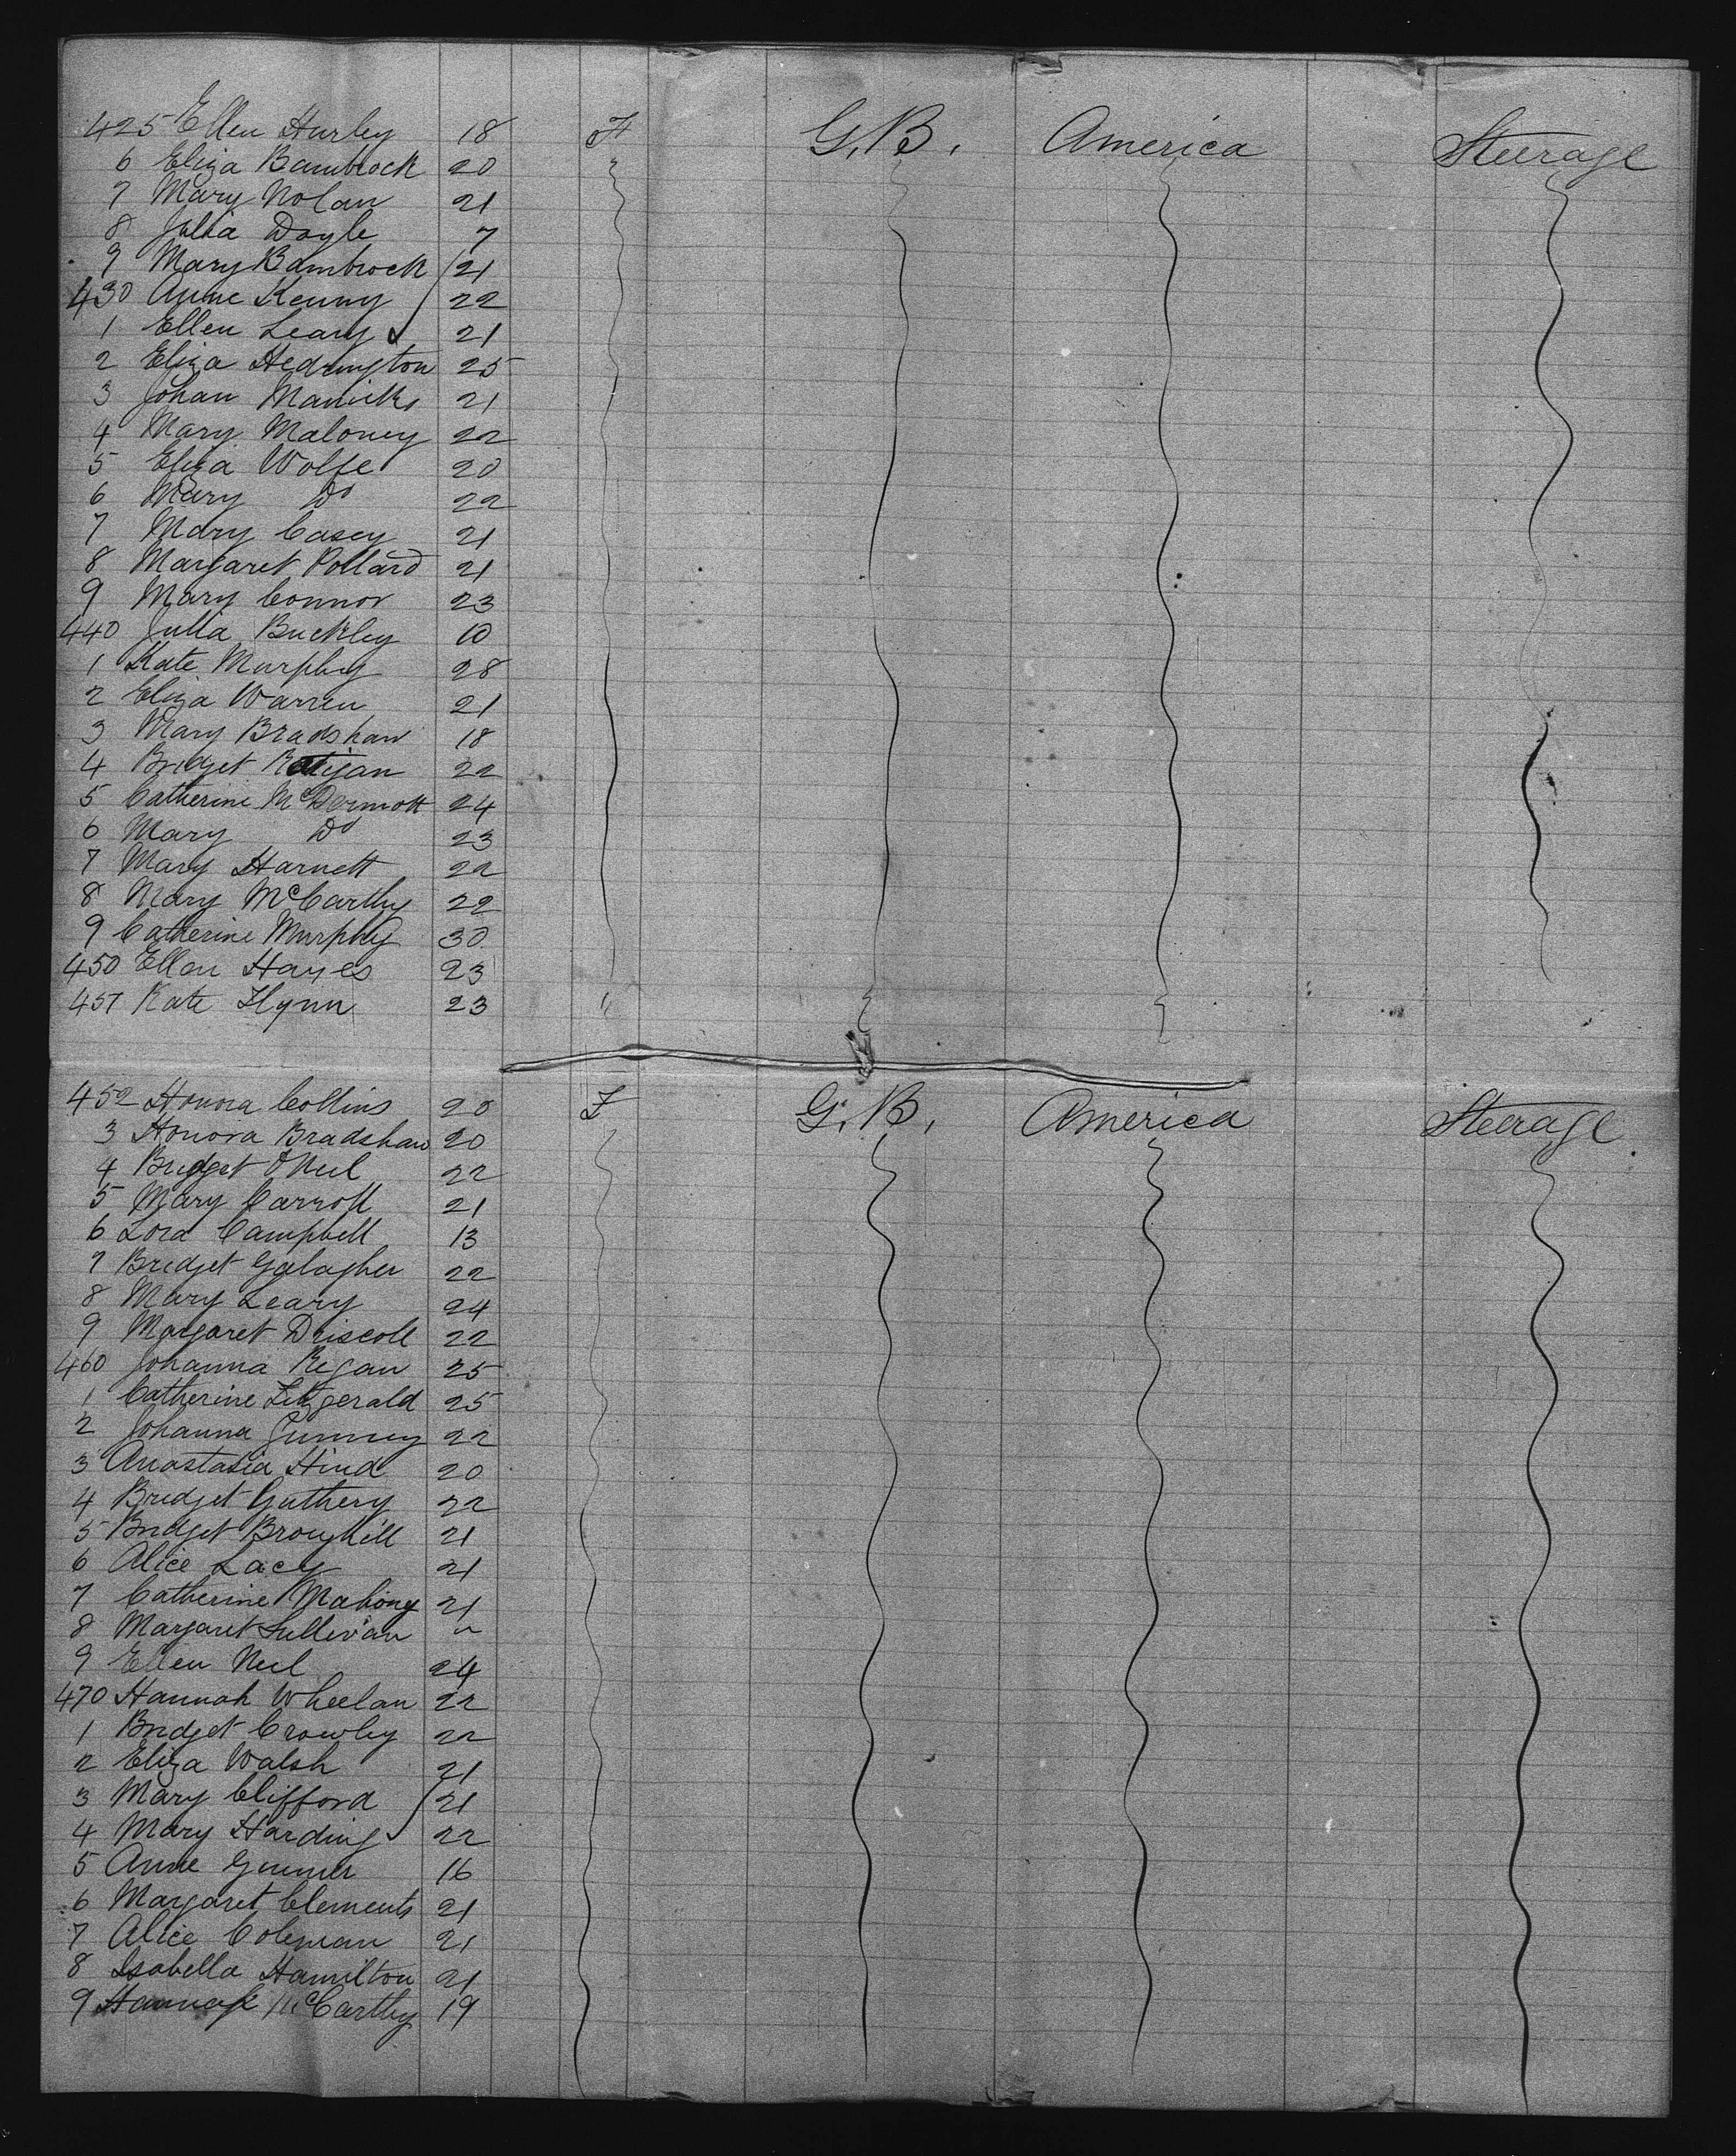 425 Ellen Hurley 18 F G.B. America Steerage
6 Eliza Bambrock 20
7 Mary Nolan 21
8 Julia Doyle 7
9 Mary Bambrock 21
430 Anne Kenny 22
1 Ellen Leary 21
2 Eliza Hedrington 25
3 Johan 21
4 Mary Maloney 22
5 Eliza Wolfe 20
6 Mary Do 22
7 Mary Casey 21
8 Margaret Pollard 21
9 Mary Connor 23
440 Julia Buckley 10
1 Kate Murphy 28
2 Eliza Warren 21
3 Mary Bradshaw 18
4 Bridget Ratigan 22
5 Catherine McDermott 24
6 Mary Do 23
7 Mary Harnett 22
8 Mary McCarthy 22
9 Catherine Murphy 30
450 Ellen Hayes 23
451 Kate Flynn 23 "
452 Honora Collins 20 F G.B. America Steerage
3 Honora Bradshaw 20
4 Bridget ONeil 22
5 Mary Carroll 21
6 Lora Campbell 13
7 Bridget Galagher 22
8 Mary Leary 24
9 Margaret Driscoll 22
460 Johanna Regan 25
1 Catherine Fitzgerald 25
2 Johanna 22
3 Anastasia Hind 20
4 Bridget Guthery 22
5 Bridget Broughill 21
6 Alice Lacy 21
7 Catherine Mahony 21
8 Margaret Sullivan "
9 Ellen Neil 24
470 Hannah Wheelan 22
1 Bridget Crowley 22
2 Eliza Walsh 21
3 Mary Clifford 21
4 Mary Harding 22
5 Anne 16
6 Margaret Clements 21
7 Alice Coleman 21
8 Isabella Hamilton 21
9 Hannah McCarthy 19